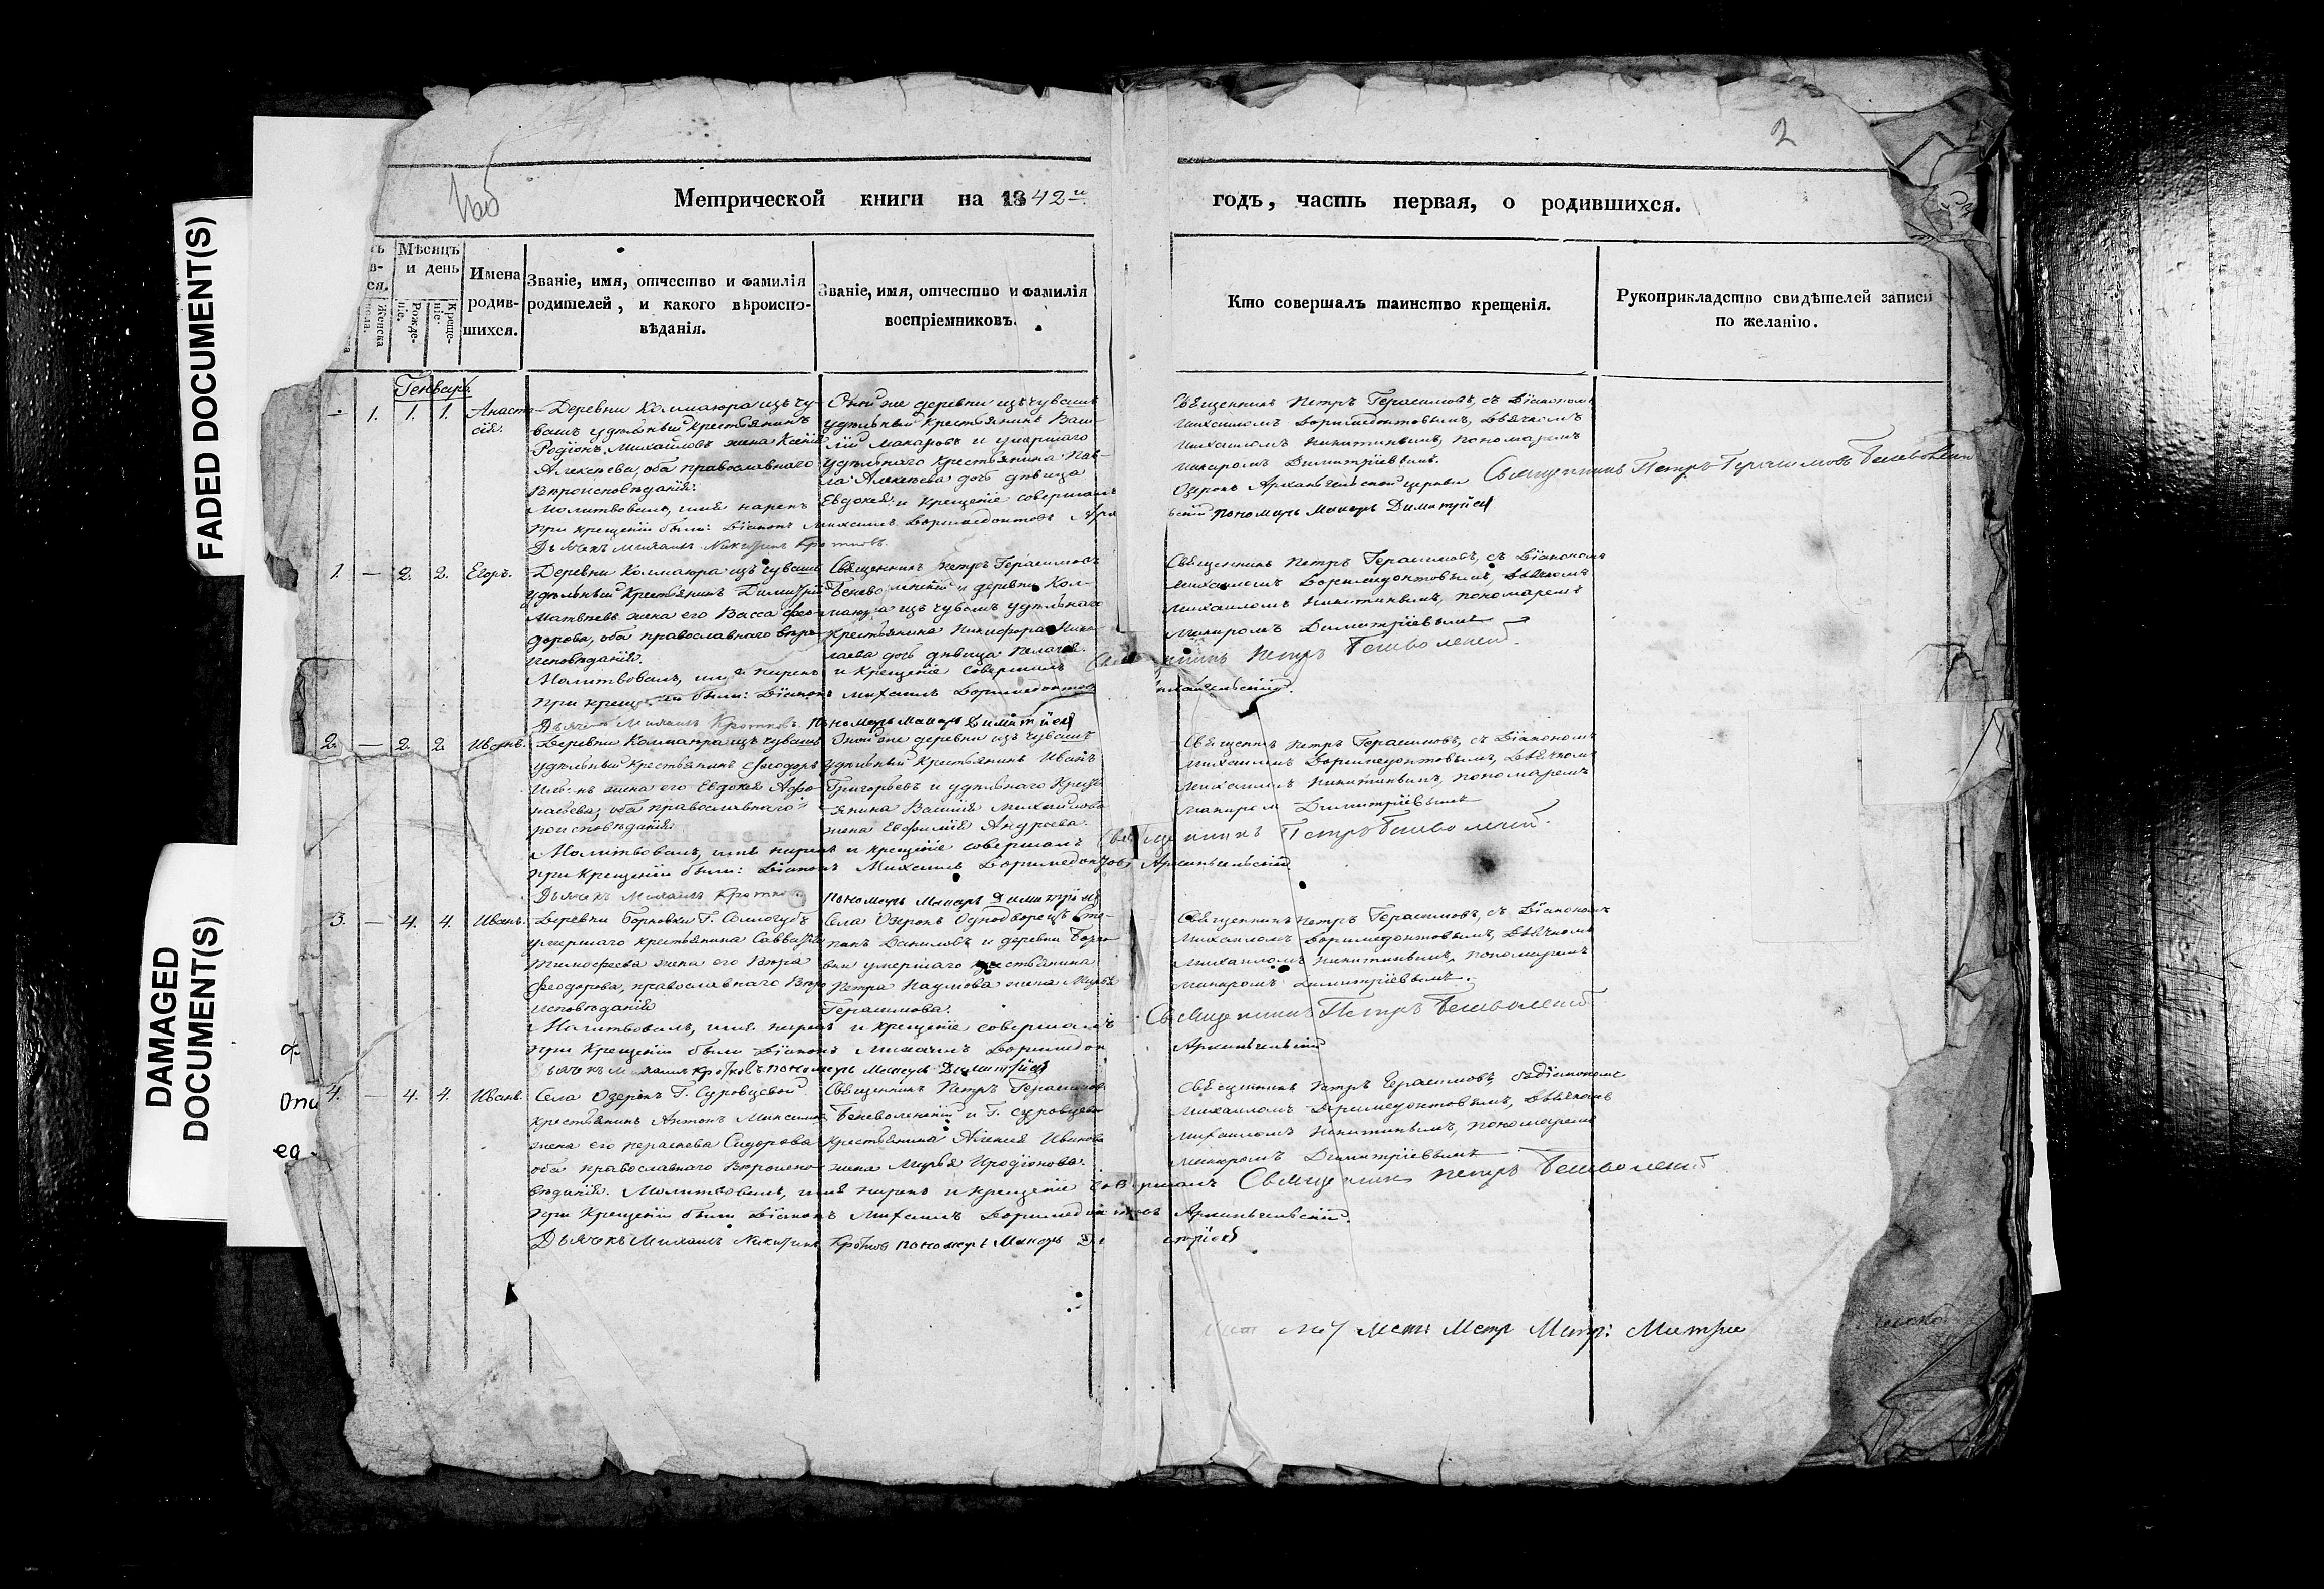 FADED DOCUMENT(S)
DAMAGED
DOCUMENT(S)
2
Метрической книги на 1842й
годъ, часть первая, о родившихся.
Мѣсяцъ и день
Рожденіе.
Крещеніе.
Женска пола.
Имена родившихся.
Званіе, имя, отчество и фамилія родителей, и какого вѣроисповѣданія.
Званіе, имя, отчество и фамилія воспріемниковъ.
Кто совершалъ таинство крещенія.
Рукоприкладство свидѣтелей записи по желанію.
Генварь
- 1. 1. 1. Анастасія.
Деревни Колмаюра изъ чувашъ удѣльный крестьянинъ
Родіонъ Михайловъ жена Ксенія
Алексѣева, оба православнаго
вѣроисповѣданія.
Оной же деревни изъ чувашъ
удѣльный крестьянинъ Василій Макаровъ и умершаго
удѣльнаго крестьянина Павла Алексѣева дочь дѣвица
Евдокія.
Священникъ Петръ Герасимовъ, съ Діакономъ
Михаиломъ Доримедонтовымъ, Дьячкомъ
Михаиломъ Никитинымъ, пономаремъ
Макаромъ Димитріевымъ.
Молитвовалъ, имя нарекъ и крещеніе совершалъ
Озерокъ Архангельской церкви Священникъ Петръ Герасимовъ Беневоленскій
При крещеніи были: Діаконъ Михаилъ Доримедонтовъ
Дьячекъ Михаилъ Никитинъ Кротковъ
пономарь Макаръ Димитріевъ
1. - 2. 2. Егоръ.
Деревни Колмаюра изъ чувашъ
удѣльный крестьянинъ Димитрій
Матвѣевъ жена его Васса Феодорова, оба православнаго вѣроисповѣданія.
Священникъ Петръ Герасимовъ
Беневоленскій и деревни Колмаюра изъ чувашъ удѣльнаго
крестьянина Никифора Николаева дочь дѣвица Пелагія.
Священникъ Петръ Герасимовъ, съ Діакономъ
Михаиломъ Доримедонтовымъ, Дьячкомъ
Михаиломъ Никитинымъ, пономаремъ
Макаромъ Димитріевымъ
Молитвовалъ, имя нарекъ и крещеніе совершалъ Священникъ Петръ Беневоленскій.
При крещеніи были: Діаконъ Михаилъ Доримедонтовъ
Дьячекъ Михаилъ Кротковъ. Пономарь Макаръ Димитріевъ
2. - 2. 2. Иванъ.
Деревни Колмаюра изъ чувашъ
удѣльный крестьянинъ Феодоръ
жена его Евдокія Афонасьева, оба православнаго вѣроисповѣданія.
Оной же деревни изъ чувашъ
удѣльный крестьянинъ Иванъ
Григорьевъ и удѣльнаго крестьянина Василія Михайлова
жена Евфимія Андреева.
Священникъ Петръ Герасимовъ, съ Діакономъ
Михаиломъ Доримедонтовымъ, Дьячкомъ
Михаиломъ Никитинымъ, пономаремъ
Макаромъ Димитріевымъ
Молитвовалъ, имя нарекъ и крещеніе совершалъ Священникъ Петръ Беневоленскій.
При крещеніи были: Діаконъ Михаилъ Доримедонтовъ Архангельскій
Дьячекъ Михаилъ Кротковъ. Пономарь Макаръ Димитріевъ
3. - 4. 4. Иванъ.
Деревни Боровки Г.
умершаго крестьянина Савватія
Тимофеева жена его Вѣра
Феодорова, православнаго вѣроисповѣданія
Села Озерокъ Однодворецъ Степанъ Даниловъ и деревни Боровки умершаго крестьянина
Петра Наумова жена Марья
Герасимова.
Священникъ Петръ Герасимовъ, съ Діакономъ
Михаиломъ Доримедонтовымъ, Дьячкомъ
Михаиломъ Никитинымъ, пономаремъ
Макаромъ Димитріевымъ.
Молитвовалъ, имя нарекъ и крещеніе совершалъ Священникъ Петръ Беневоленскій
При крещеніи были Діаконъ Михаилъ Архангельскій
Дьячекъ Михаилъ Кротковъ пономарь Макаръ Димитріевъ
4. - 4. 4. Иванъ.
Села Озерокъ Г. Суровцевой
крестьянинъ Антонъ Максимовъ
жена его Параскева Сидорова
оба православнаго вѣроисповѣданія.
Священникъ Петръ Герасимовъ
Беневоленскій и Г. Суровцевой
крестьянина Алексія Иванова
жена Марья Иродіонова.
Священникъ Петръ Герасимовъ, съ Діакономъ
Михаиломъ Доримедонтовымъ, Дьячкомъ
Михаиломъ Никитинымъ, пономаремъ
Макаромъ Димитріевымъ
Молитвовалъ, имя нарекъ и крещеніе совершалъ Священникъ Петръ Беневоленскій
При крещеніи были Діаконъ Михаилъ Доримедонтовъ Архангельскій.
Дьячекъ Михаилъ Никитинъ Кротковъ пономарь Макаръ
Метр Метр: Метри